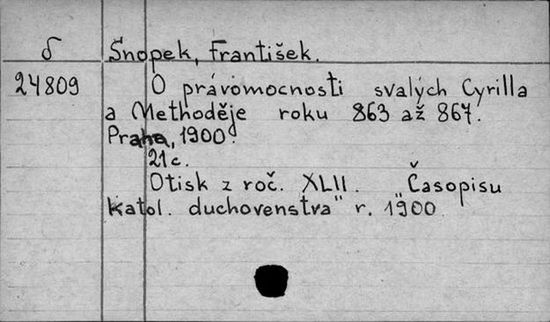 δ Snopek, František.
24809 O právomocnosti svalých Cyrilla
a Methoděje roku 863 až 867.
Praha, 1900.
21c.
Otisk z roč. XLII. „Časopisu
katol. duchovenstva" r. 1900